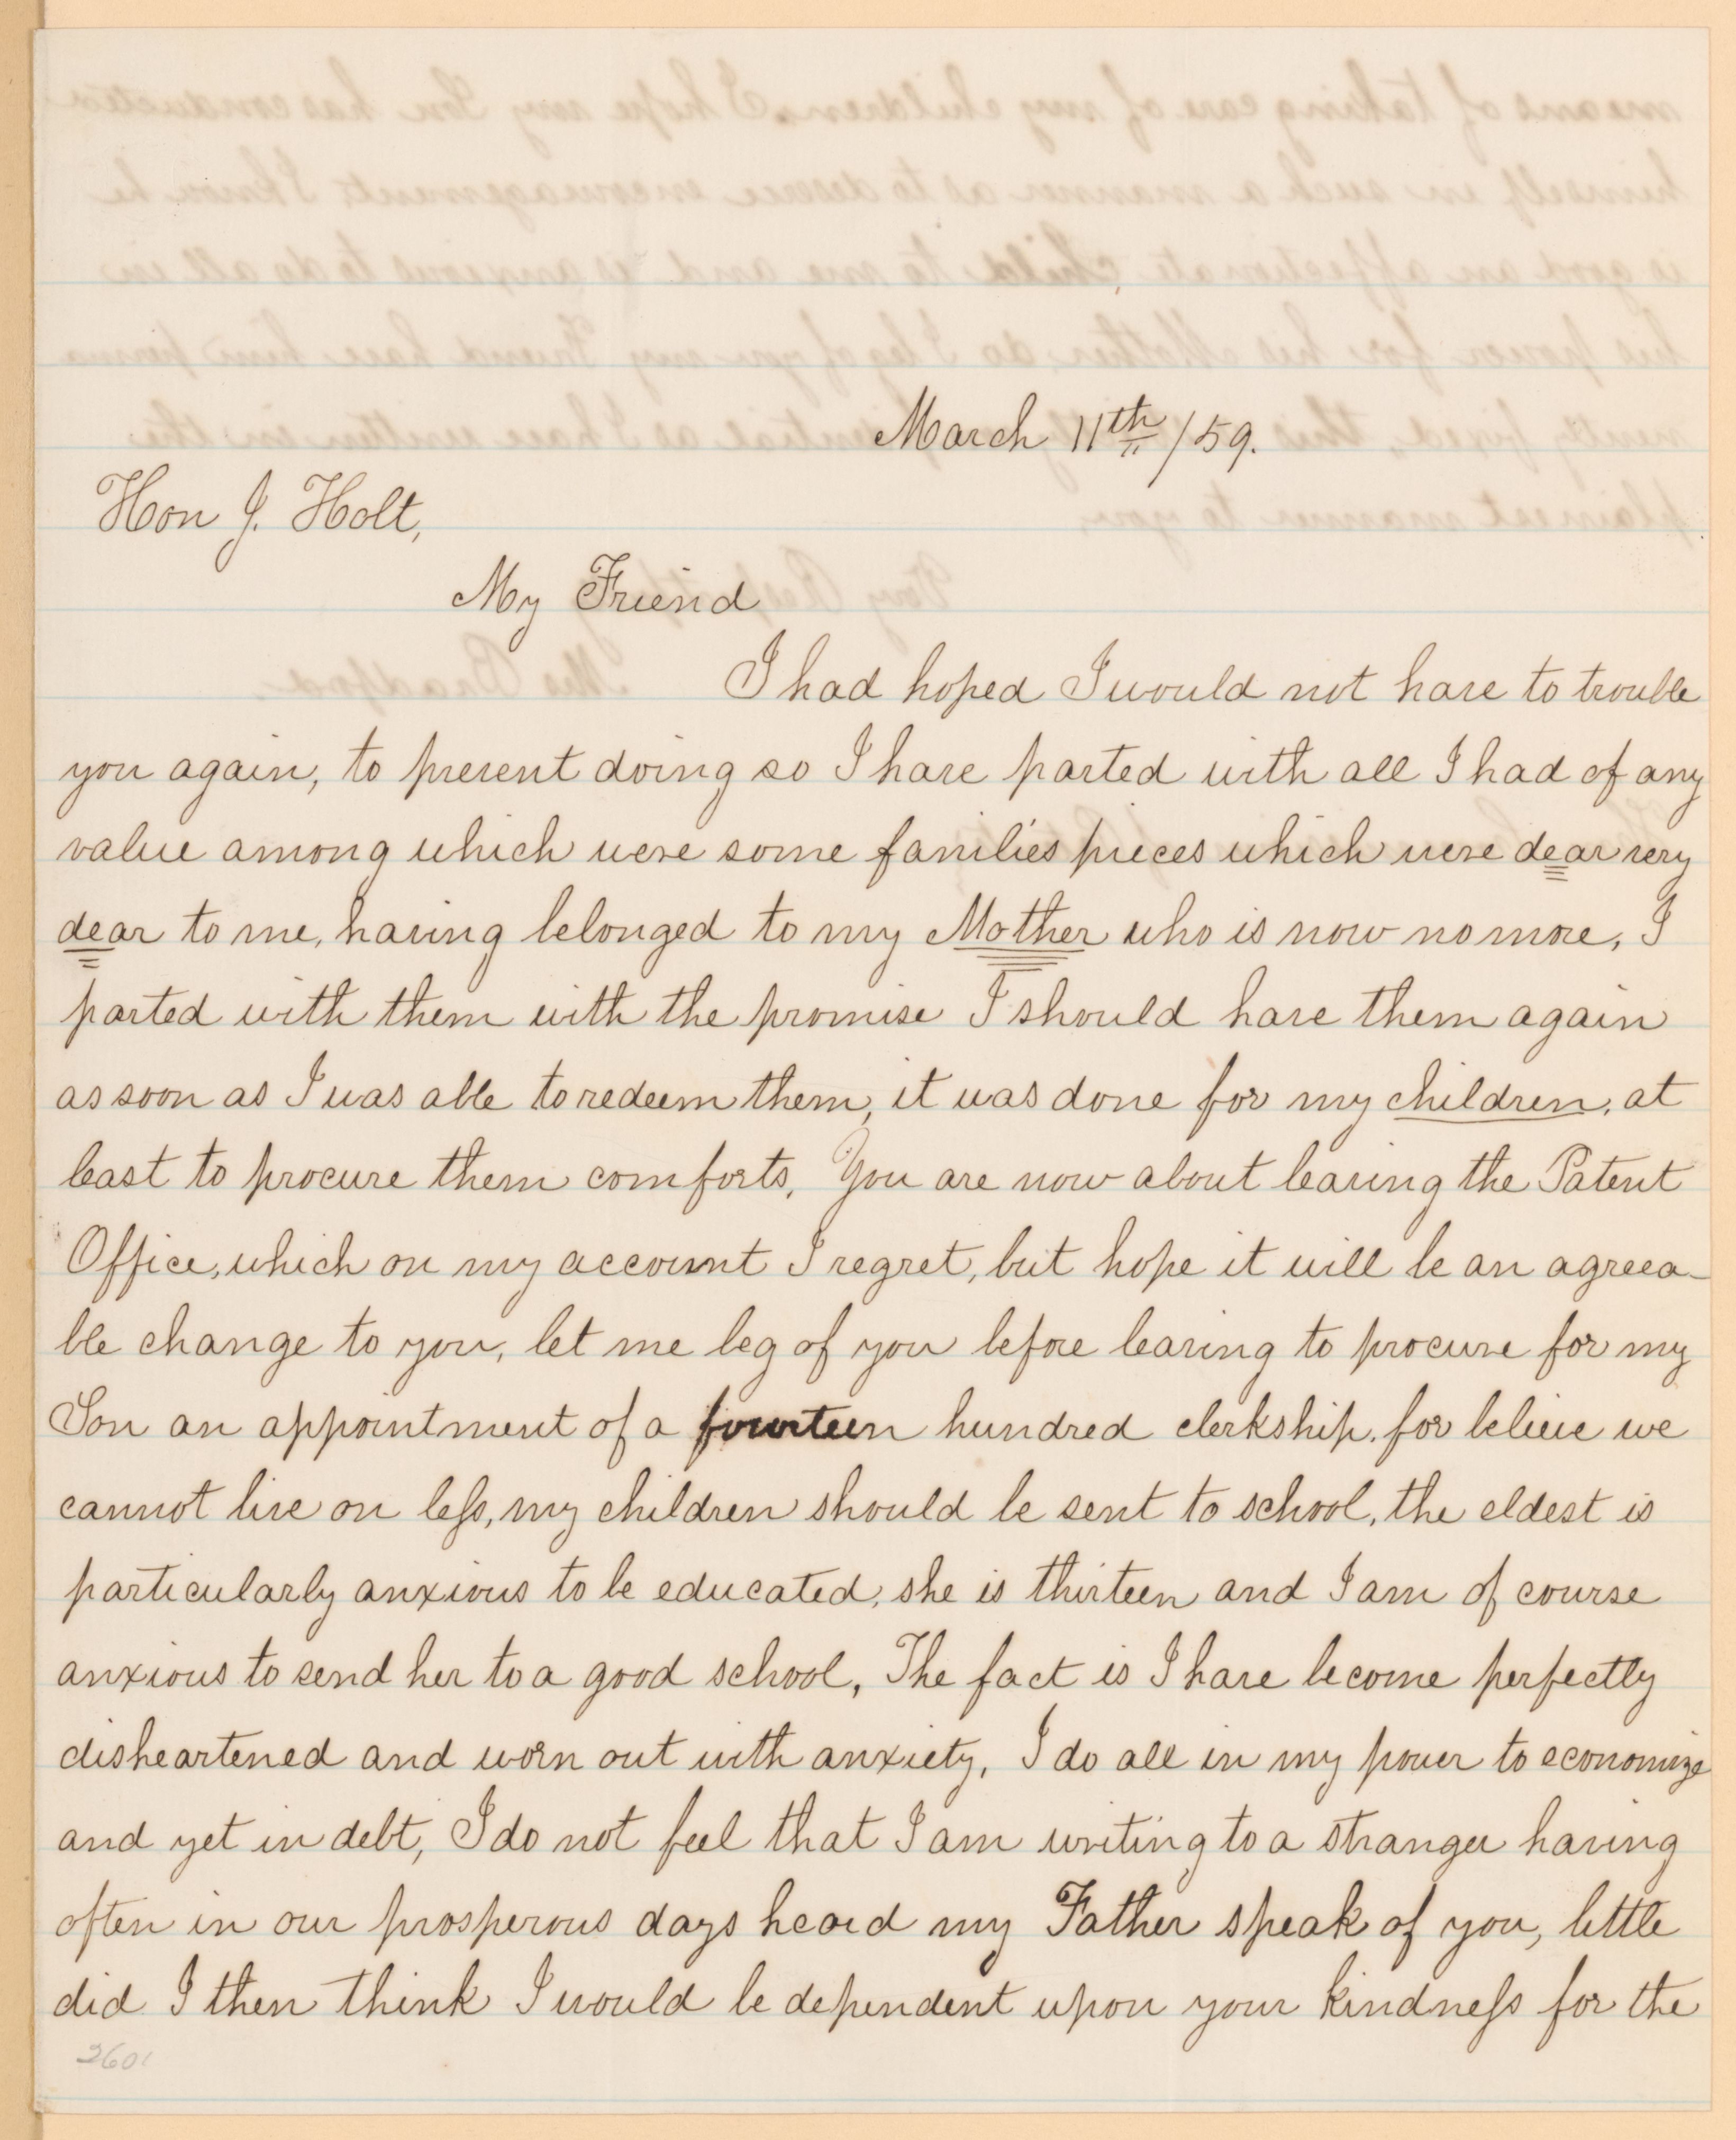 March 11th /59.
Hon J. Holt,
My Friend
I had hoped I would not have to trouble
you again, to prevent doing so I have parted with all I had of any
value among which were some families pieces which were dear very
dear to me, having belonged to my Mother who is now no more, I
parted with them with the promise I should have them again
as soon as I was able to redeem them, it was done for my children, at
least to procure them comforts, You are now about leaving the Patent
Office, which on my account I regret, but hope it will be an agreea-
ble change to you, let me beg of you before leaving to procure for my
Son an appointment of a fourteen hundred clerkship, for believe we
cannot live on less, my children should be sent to school, the eldest is
particularly anxious to be educated, she is thirteen and I am of course
anxious to send her to a good school, The fact is I have become perfectly
disheartened and worn out with anxiety, I do all in my power to economize
and yet in debt, I do not feel that I am writing to a stranger having
often in our prosperous days heard my Father speak of you, little
did I then think I would be dependent upon your kindness for the
2601